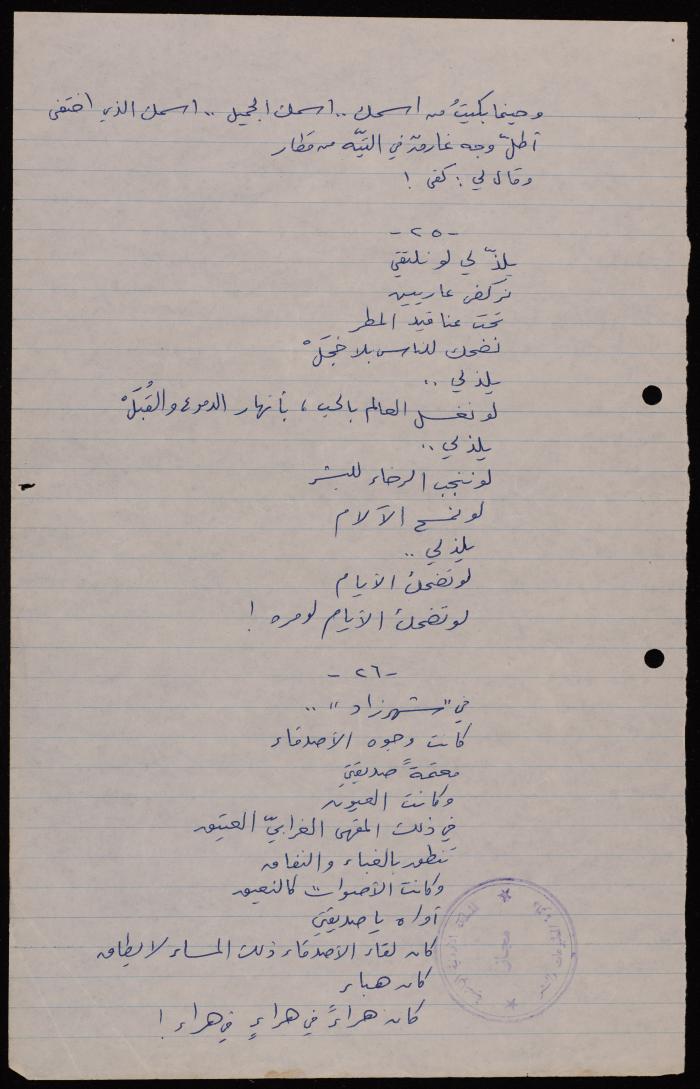 وحينما بكيتُ من اسمك .. اسمك الجميل .. اسمك الذي اختفى
أطلّ وجه غارق في التيّه من قطار
وقال لي : كفى !
- ٢٥ -
يلذّ لي لو نلتقي
نركض عاريين
تحت عناقيد المطر
نضحك للناس بلا خجَلْ
يلذ لي ..
لو نغسل العالم بالحب ، بأنهار الدموع والقُبَلْ
يلذ لي ..
لو ننجب الرخاء للبشر
لو نمسح الآلام
يلذ لي ..
لو تضحك الأيام
لو تضحك الأيام لو مره !
- ٢٦ -
في "شهرزاد" ..
كانت وجوه الأصدقاء
معتمةً صديقتي
وكانت العيون
في ذلك المقهى الغرابيّ العتيق
تنطق بالغباء والنفاق
وكانت الأصوات كالنعيق
أواه يا صديقتي
كان لقاء الأصدقاء ذلك المساء لا يطاق
كان هباء
كان هراءً في هراءٍ في هراء !
مجاز